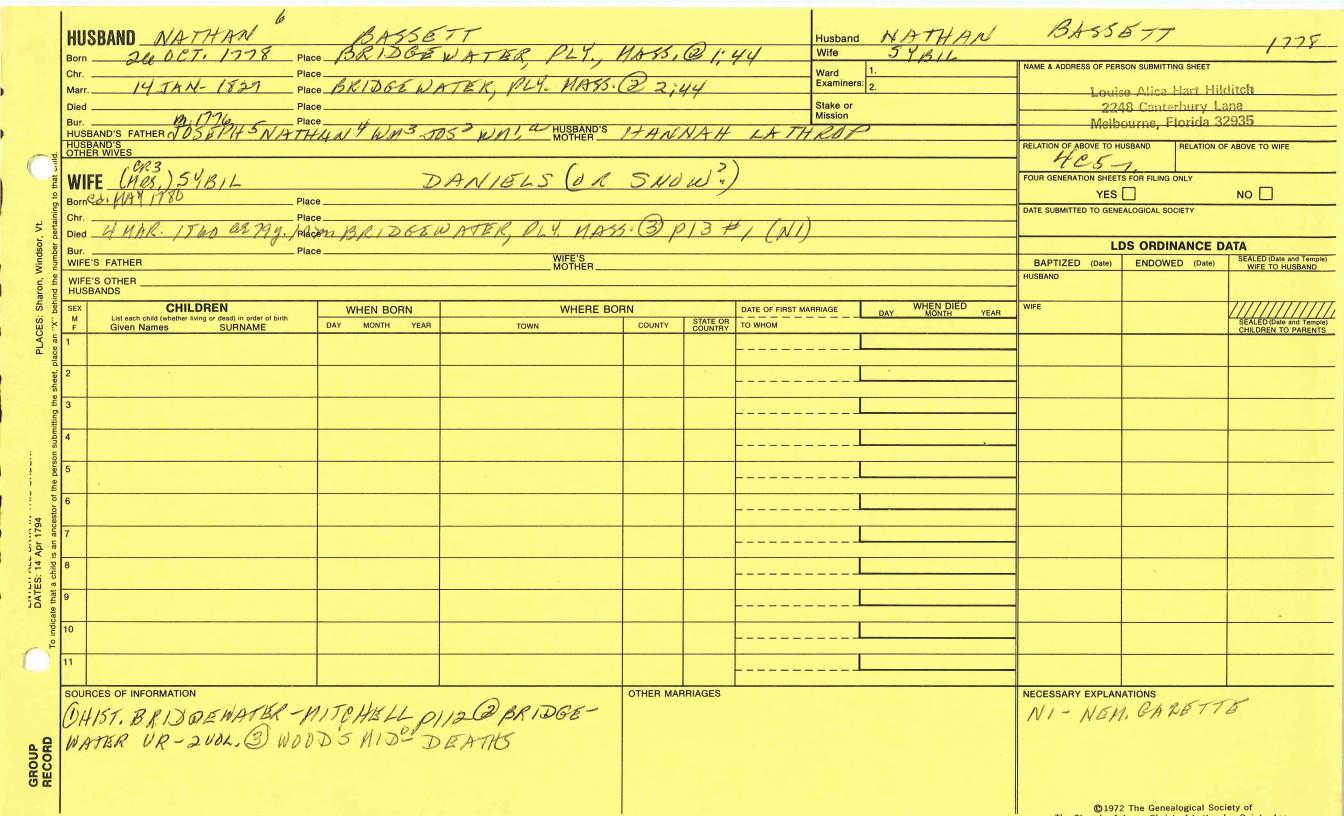 HUSBAND NATHAN 6 BASSETT
Born 26 OCT. 1778 Place BRIDGEWATER, PLY., MASS. ② 1:44
Chr. Place
Marr. 14 JAN- 1827 Place BRIDGEWATER, PLY. MASS. ② 2:44
Died Place
Bur. Place
m. 1776
HUSBAND'S FATHER JOSEPH 5 NATHAN 4 WM 3 JOS 2 WM 1 HUSBAND'S MOTHER HANNAH LATHROP
HUSBAND'S OTHER WIVES
CR3
WIFE (MRS.) SYBIL DANIELS (OR SNOW?)
Born ca. MAY 1780 Place
Chr. Place
Died 4 MAR. 1860 ae 79y. 10m Place BRIDGEWATER, PLY. MASS. ③ P13 #1 (N1)
Bur. Place
WIFE'S FATHER WIFE'S MOTHER
WIFE'S OTHER HUSBANDS
Husband NATHAN BASSETT 1778
Wife SYBIL
Ward Examiners: 1.
2.
Stake or Mission
NAME & ADDRESS OF PERSON SUBMITTING SHEET
Louise Alice Hart Hilditch
2248 Canterbury Lane
Melbourne, Florida 32935
RELATION OF ABOVE TO HUSBAND RELATION OF ABOVE TO WIFE
4C5
FOUR GENERATION SHEETS FOR FILING ONLY
YES NO
DATE SUBMITTED TO GENEALOGICAL SOCIETY
LDS ORDINANCE DATA
BAPTIZED (Date) ENDOWED (Date) SEALED (Date and Temple) WIFE TO HUSBAND
HUSBAND
WIFE
SEALED (Date and Temple) CHILDREN TO PARENTS
SEX M F
CHILDREN
List each child (whether living or dead) in order of birth
Given Names SURNAME
WHEN BORN
DAY MONTH YEAR
WHERE BORN
TOWN COUNTY STATE OR COUNTRY
DATE OF FIRST MARRIAGE
TO WHOM
WHEN DIED
DAY MONTH YEAR
1
2
3
4
5
6
7
8
9
10
11
SOURCES OF INFORMATION
① HIST. BRIDGEWATER - MITCHELL P112 ② BRIDGE-
WATER VR - 2 VOL. ③ WOOD'S MID DEATHS
OTHER MARRIAGES
NECESSARY EXPLANATIONS
N1 - NEM. GAZETTE
©1972 The Genealogical Society of
PLACES: Sharon, Windsor, Vt.
DATES: 14 Apr 1794
To indicate that a child is an ancestor of the person submitting the sheet, place an "X" behind the number pertaining to that child.
GROUP RECORD